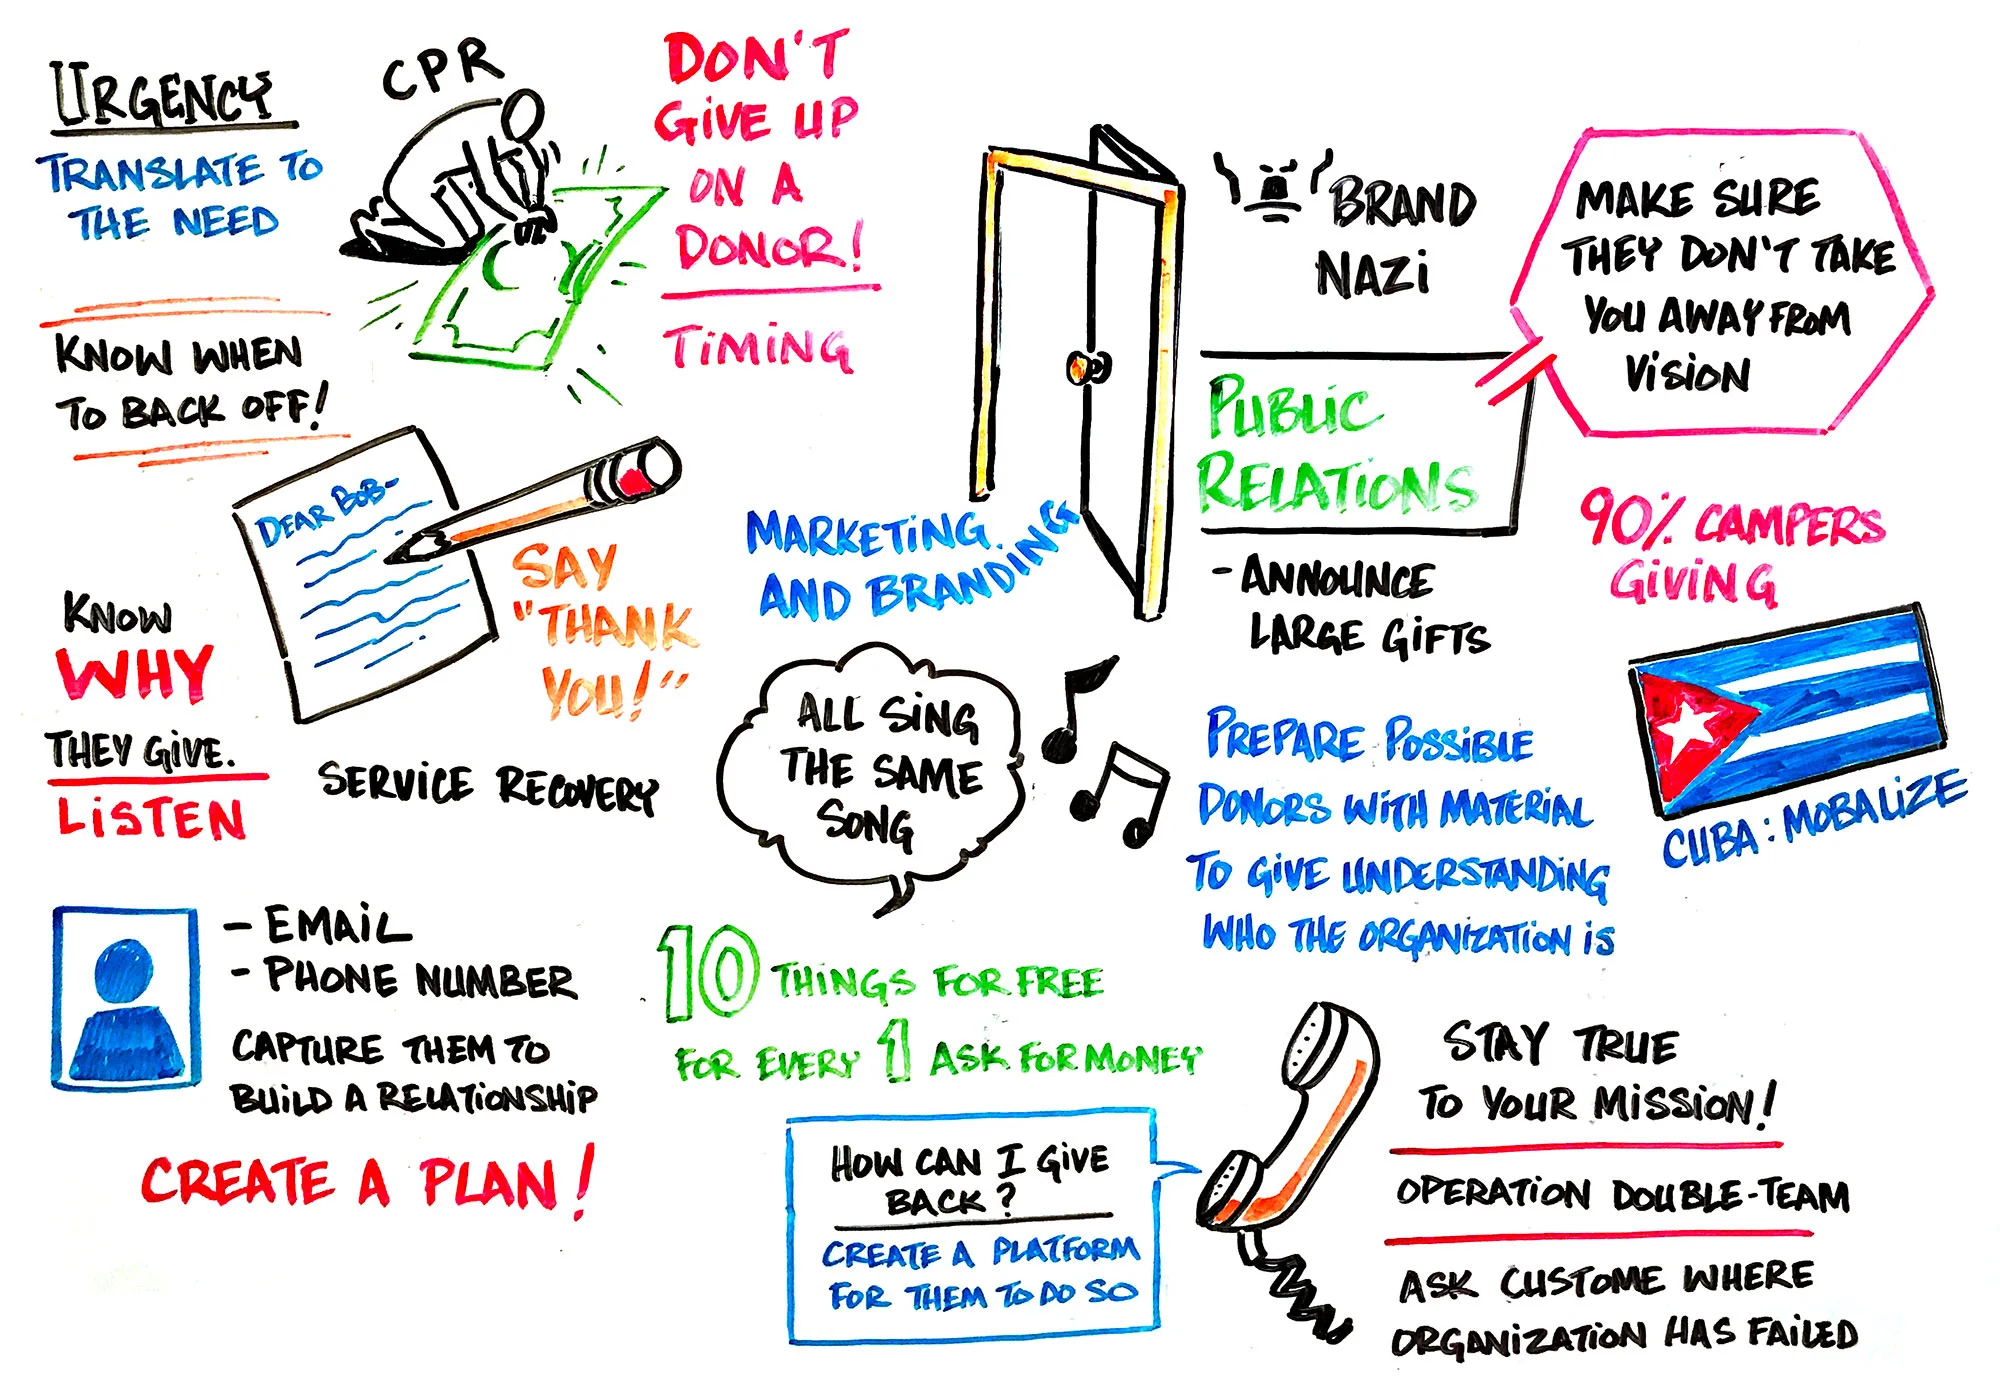 URGENCY
TRANSLATE TO
THE NEED
KNOW WHEN
TO BACK OFF!
CPR
DON'T
GIVE UP
ON A
DONOR!
TIMING
DEAR BOB-
SAY
"THANK
YOU!"
KNOW
WHY
THEY GIVE.
LISTEN
SERVICE RECOVERY
- EMAIL
- PHONE NUMBER
CAPTURE THEM TO
BUILD A RELATIONSHIP
CREATE A PLAN!
MARKETING
AND BRANDING
ALL SING
THE SAME
SONG
10 THINGS FOR FREE
FOR EVERY 1 ASK FOR MONEY
HOW CAN I GIVE
BACK?
CREATE A PLATFORM
FOR THEM TO DO SO
BRAND
NAZI
MAKE SURE
THEY DON'T TAKE
YOU AWAY FROM
VISION
PUBLIC
RELATIONS
- ANNOUNCE
LARGE GIFTS
90% CAMPERS
GIVING
CUBA: MOBALIZE
PREPARE POSSIBLE
DONORS WITH MATERIAL
TO GIVE UNDERSTANDING
WHO THE ORGANIZATION IS
STAY TRUE
TO YOUR MISSION!
OPERATION DOUBLE-TEAM
ASK CUSTOME WHERE
ORGANIZATION HAS FAILED